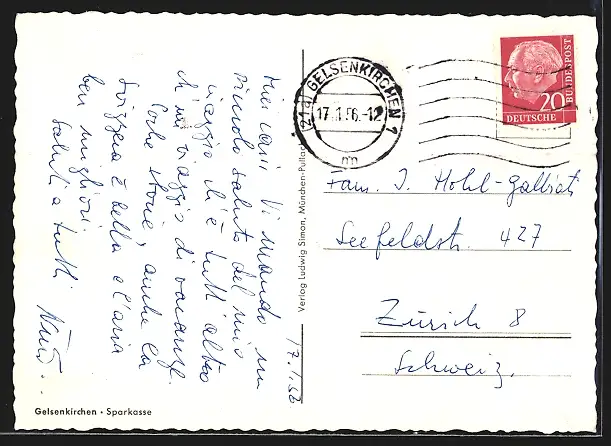 Miei cari Vi mando un
piccolo saluto del mio
viaggio che è tutt'altro
ch un viaggio di vacanze.
Come stone, anche la
Svizzera è bella e l'aria
ben migliori.
Saluti a tutti
17.1.56
Gelsenkirchen · Sparkasse
Verlag Ludwig Simon, München-Pullach
(21a) GELSENKIRCHEN 1
17.1.56.-12
mm
20
DEUTSCHE
BUNDESPOST
Fam. J. Hohl-Galbiati
Seefeldstr. 427
Zürich 8
Schweiz.